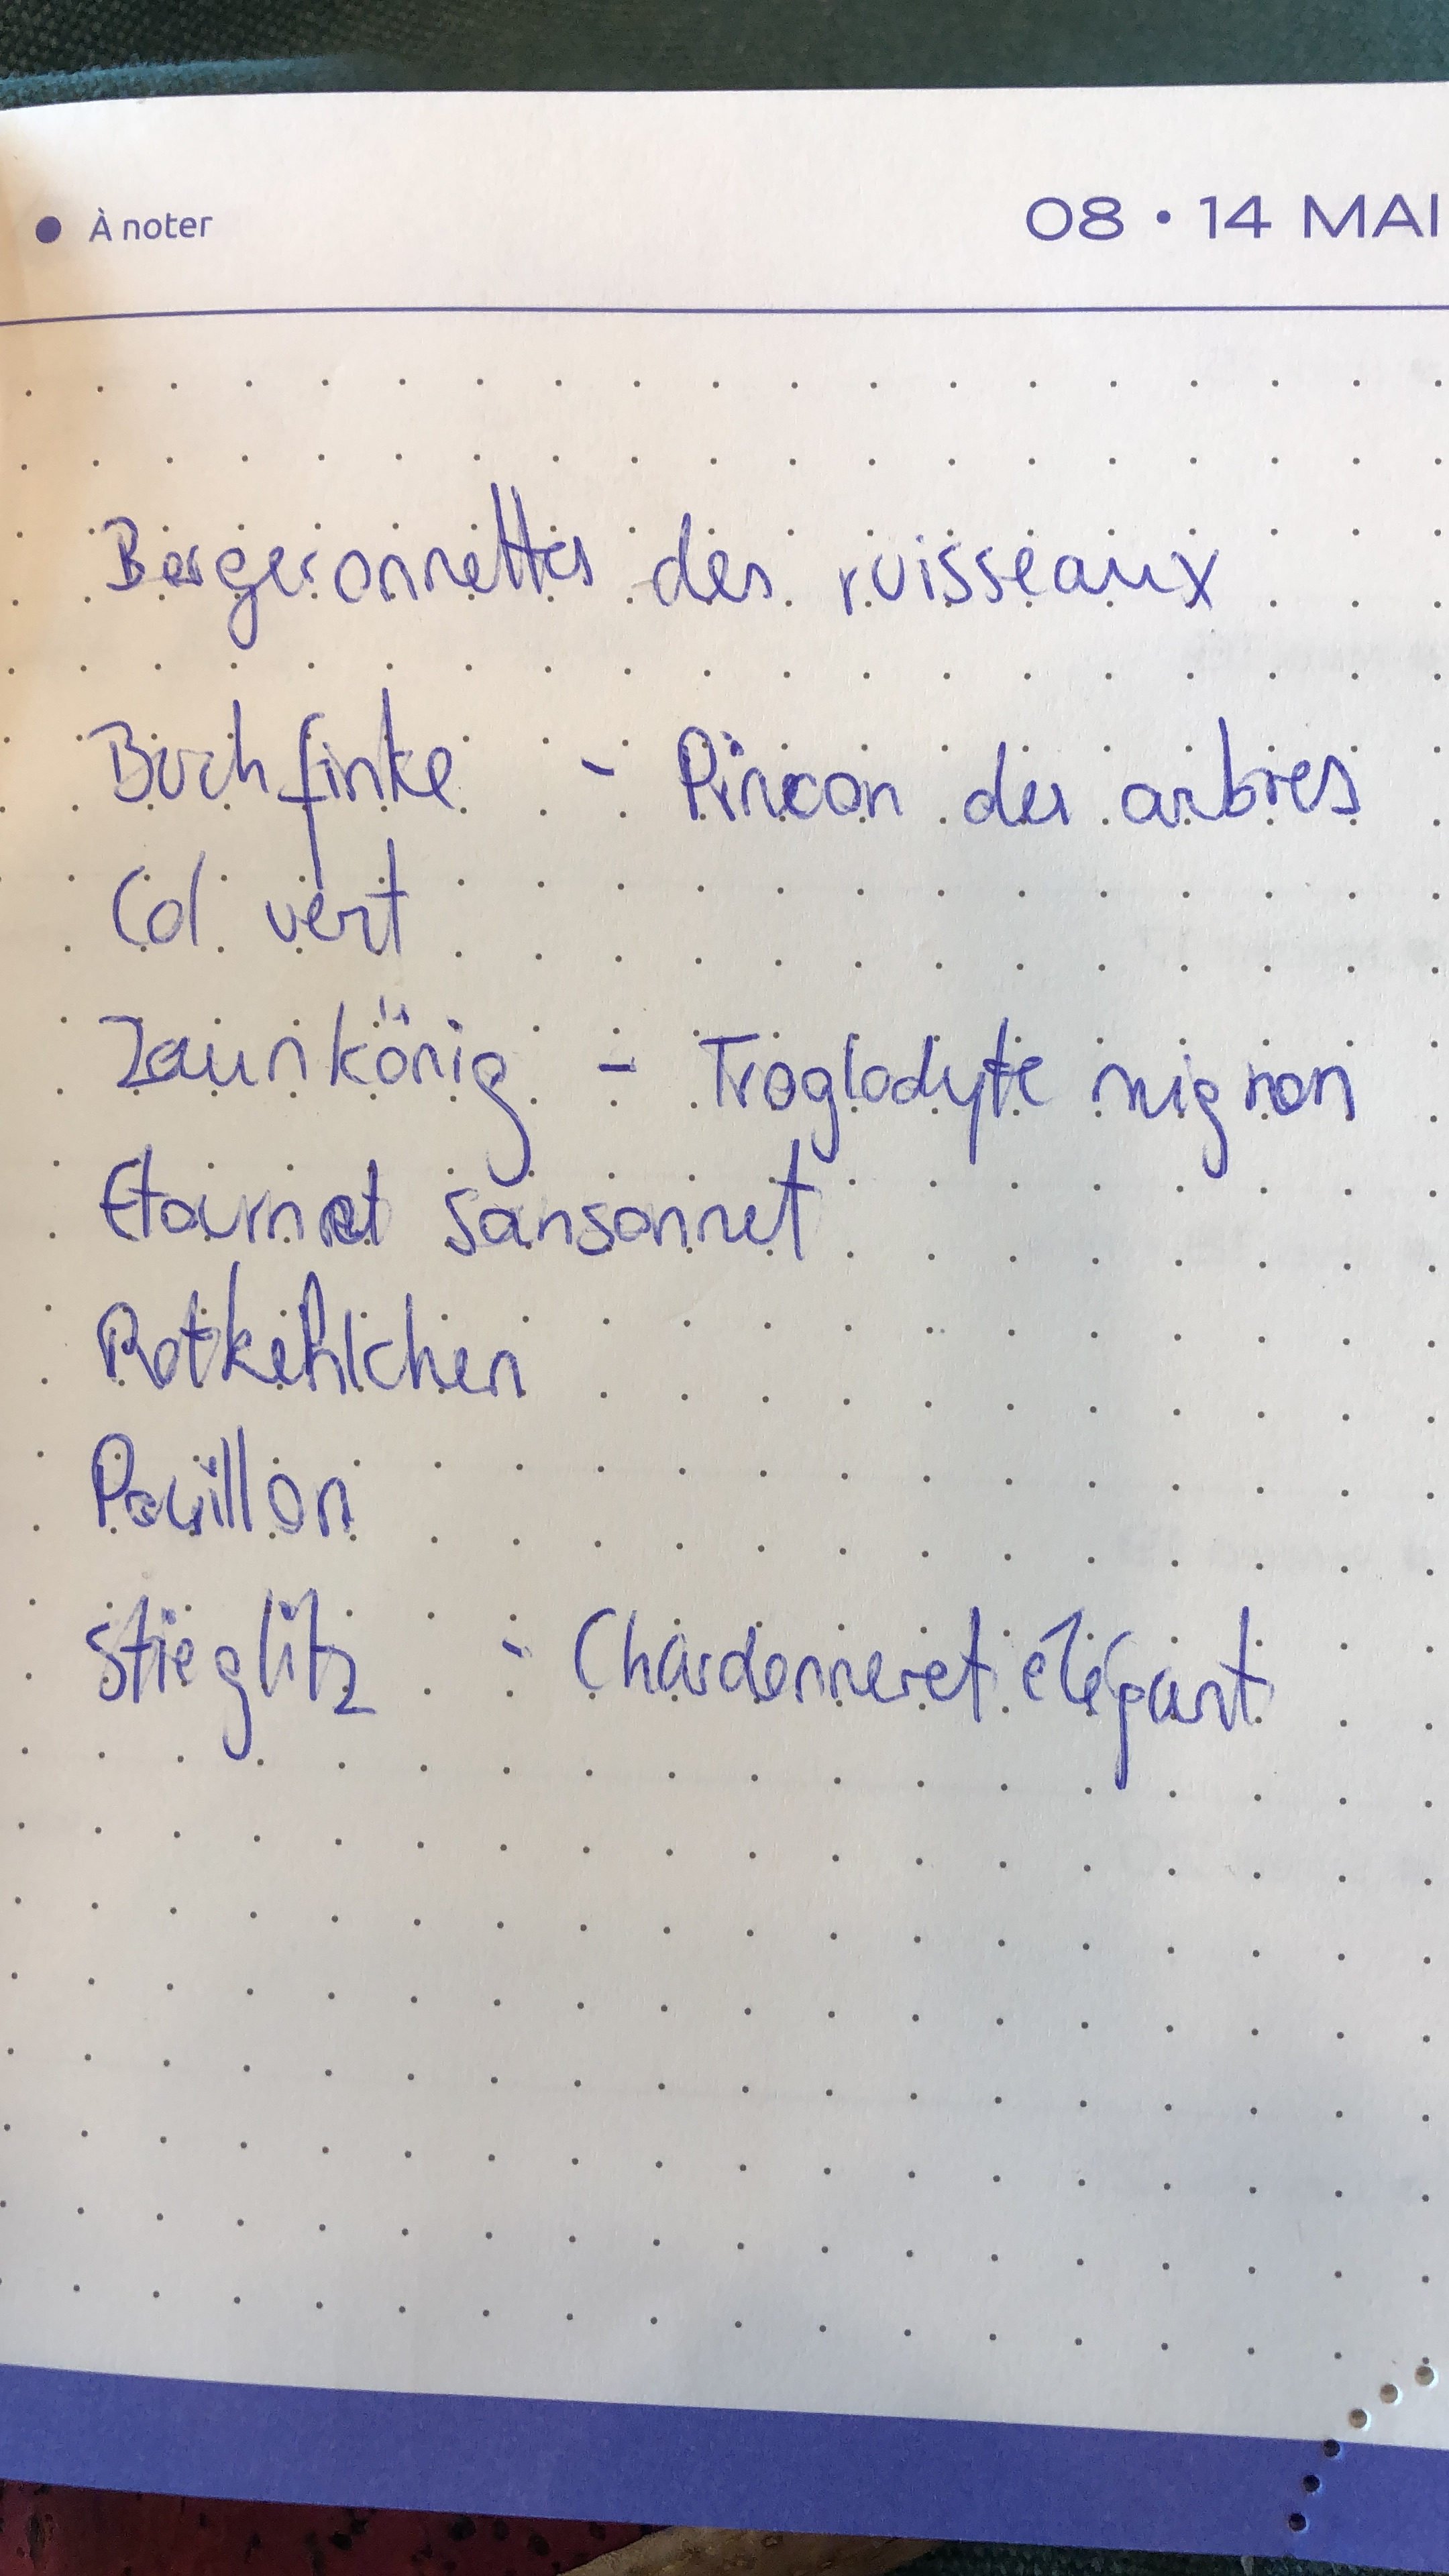 À noter 08 • 14 MAI
Bergeronnettes des ruisseaux
Buchfinke - Pincon des arbres
Col vert
Zaunkönig - Troglodyte mignon
Etournet sansonnet
Rotkehlchen
Pouillon
Stieglitz - Chardonneret élégant